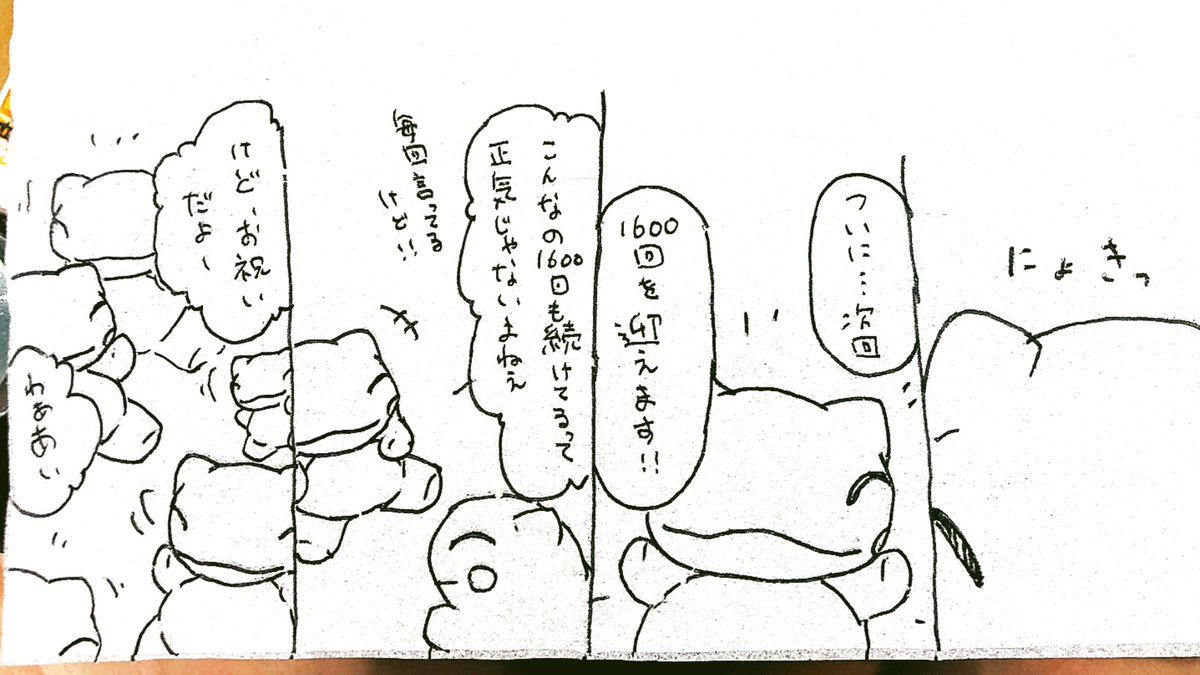 にょきっ
ついに…次回
1600
回を
迎えます!!
こんなの1600回も続けてるって
正気じゃないよねぇ
毎回言ってる
けど!!
けど、お祝い
だよ〜
わぁあい